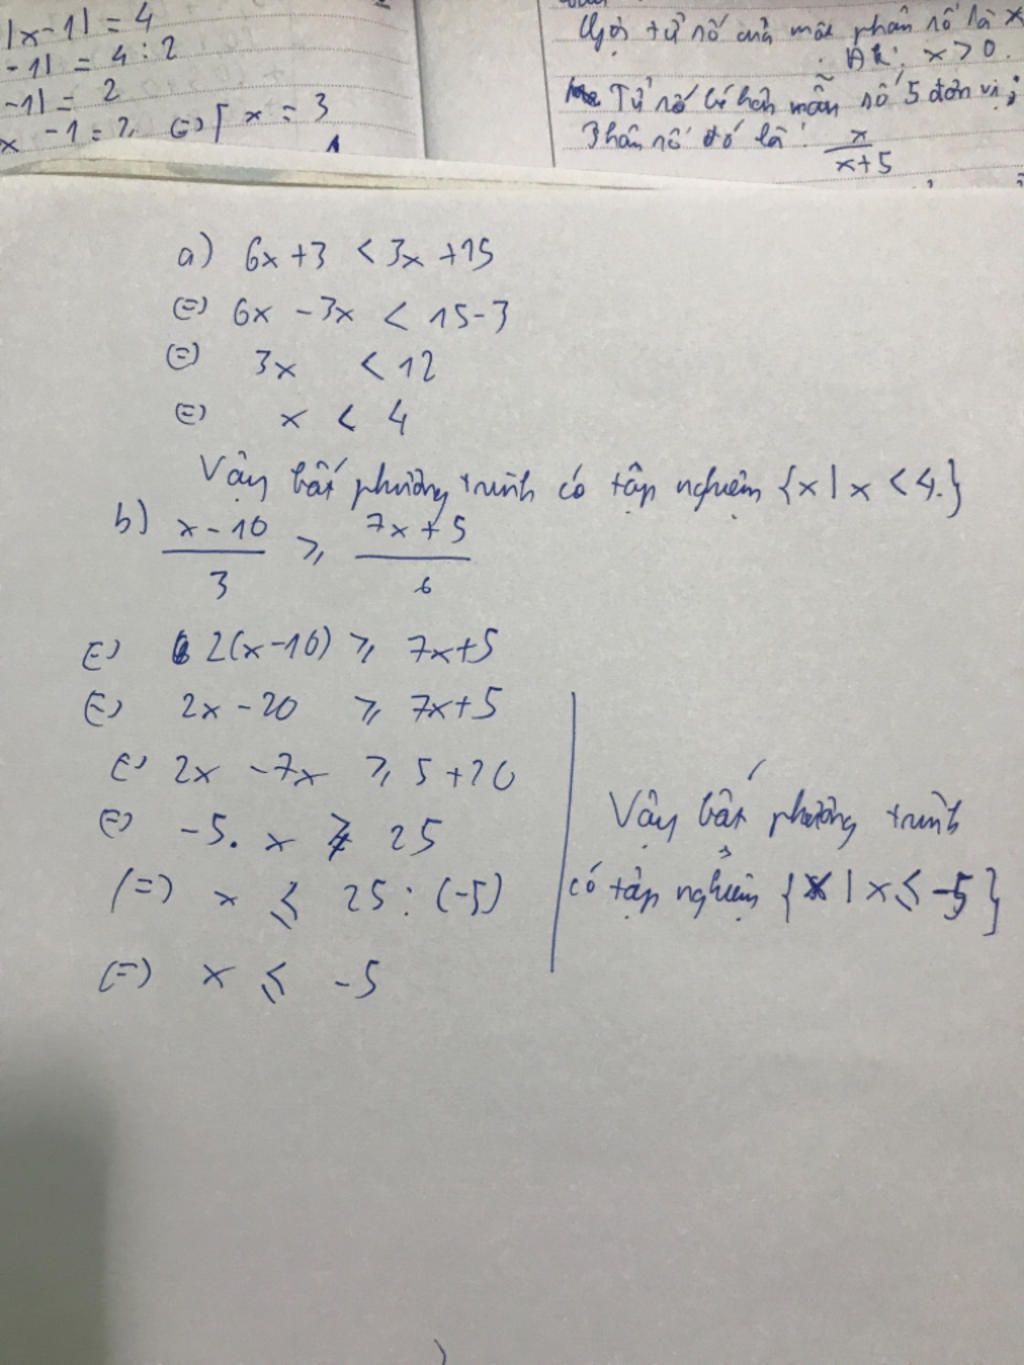 |x-1| = 4
-1| = 4 : 2
-1| = 2
x - 1 = 2 (=) [ x = 3
1
Gọi tử số của một phân số là x
ĐK: x > 0.
Tử số bé hơn mẫu số 5 đơn vị;
Phân số đó là: x/x+5
a) 6x + 3 < 3x + 15
(=) 6x - 3x < 15 - 3
(=) 3x < 12
(=) x < 4
Vậy bất phương trình có tập nghiệm {x | x < 4.}
b) x - 10/3 ⩾ 7x + 5/6
(=) 2(x - 10) ⩾ 7x + 5
(=) 2x - 20 ⩾ 7x + 5
(=) 2x - 7x ⩾ 5 + 20
(=) -5. x ⩾ 25
(=) x ⩽ 25 : (-5)
(=) x ⩽ -5
Vậy bất phương trình
có tập nghiệm {x | x ⩽ -5}